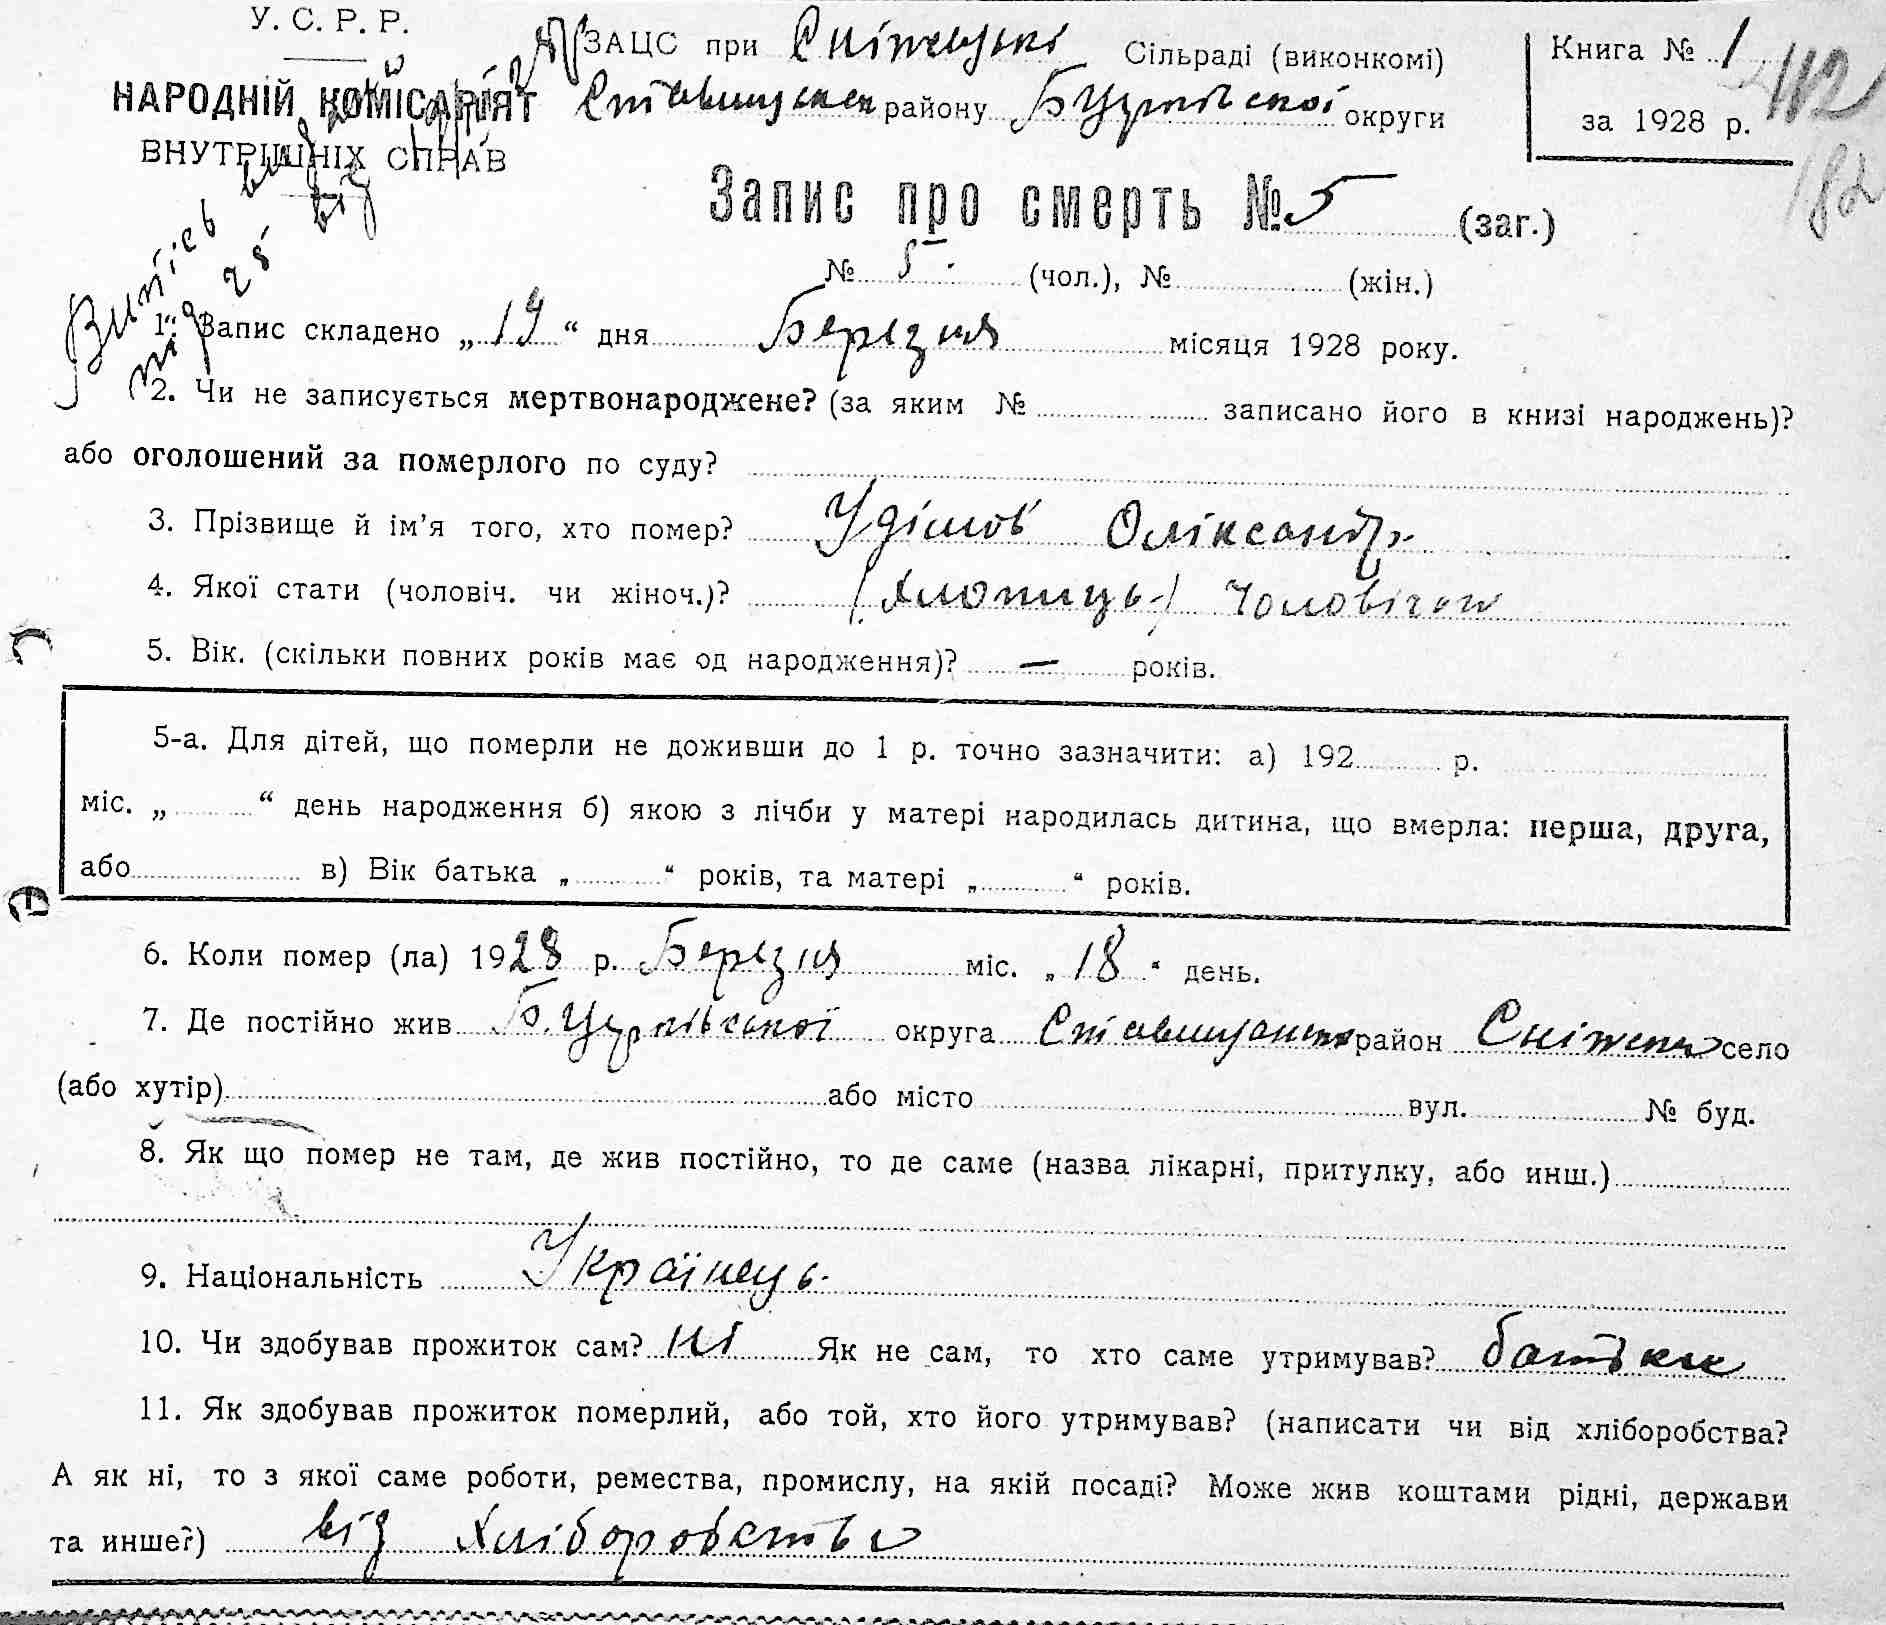 У. С. Р. Р.
НАРОДНІЙ КОМІСАРІЯТ
ВНУТРІШНІХ СПРАВ
ЗАЦС при Сніжецькі Сільраді (виконкомі)
Ставищанськ району Б. Церківської округи
Книга № 1
за 1928 р.
412
182
Запис про смерть № 5 (заг.)
№ 5. (чол.), № (жін.)
1. Запис складено „ 19 “ дня Березня місяця 1928 року.
2. Чи не записується мертвонароджене? (за яким № записано його в книзі народжень)?
або оголошений за померлого по суду?
3. Прізвище й ім’я того, хто помер? Удімов Оліксандр.
4. Якої стати (чоловіч. чи жіноч.)? (Хлопиць) Чоловічои
5. Вік. (скільки повних років має од народження)? — років.
5-а. Для дітей, що померли не доживши до 1 р. точно зазначити: а) 192 р.
міс. „ “ день народження б) якою з лічби у матері народилась дитина, що вмерла: перша, друга,
або в) Вік батька „ “ років, та матері „ “ років.
6. Коли помер (ла) 1928 р. Березня міс. „ 18 “ день.
7. Де постійно жив Б. Церківської округа Ставищанськ район Сніжки село
(або хутір) або місто вул. № буд.
8. Як що помер не там, де жив постійно, то де саме (назва лікарні, притулку, або инш.)
9. Національність Українець.
10. Чи здобував прожиток сам? ні Як не сам, то хто саме утримував? батьки
11. Як здобував прожиток померлий, або той, хто його утримував? (написати чи від хліборобства?
А як ні, то з якої саме роботи, ремества, промислу, на якій посаді? Може жив коштами рідні, держави
та инше?) від Хліборобства